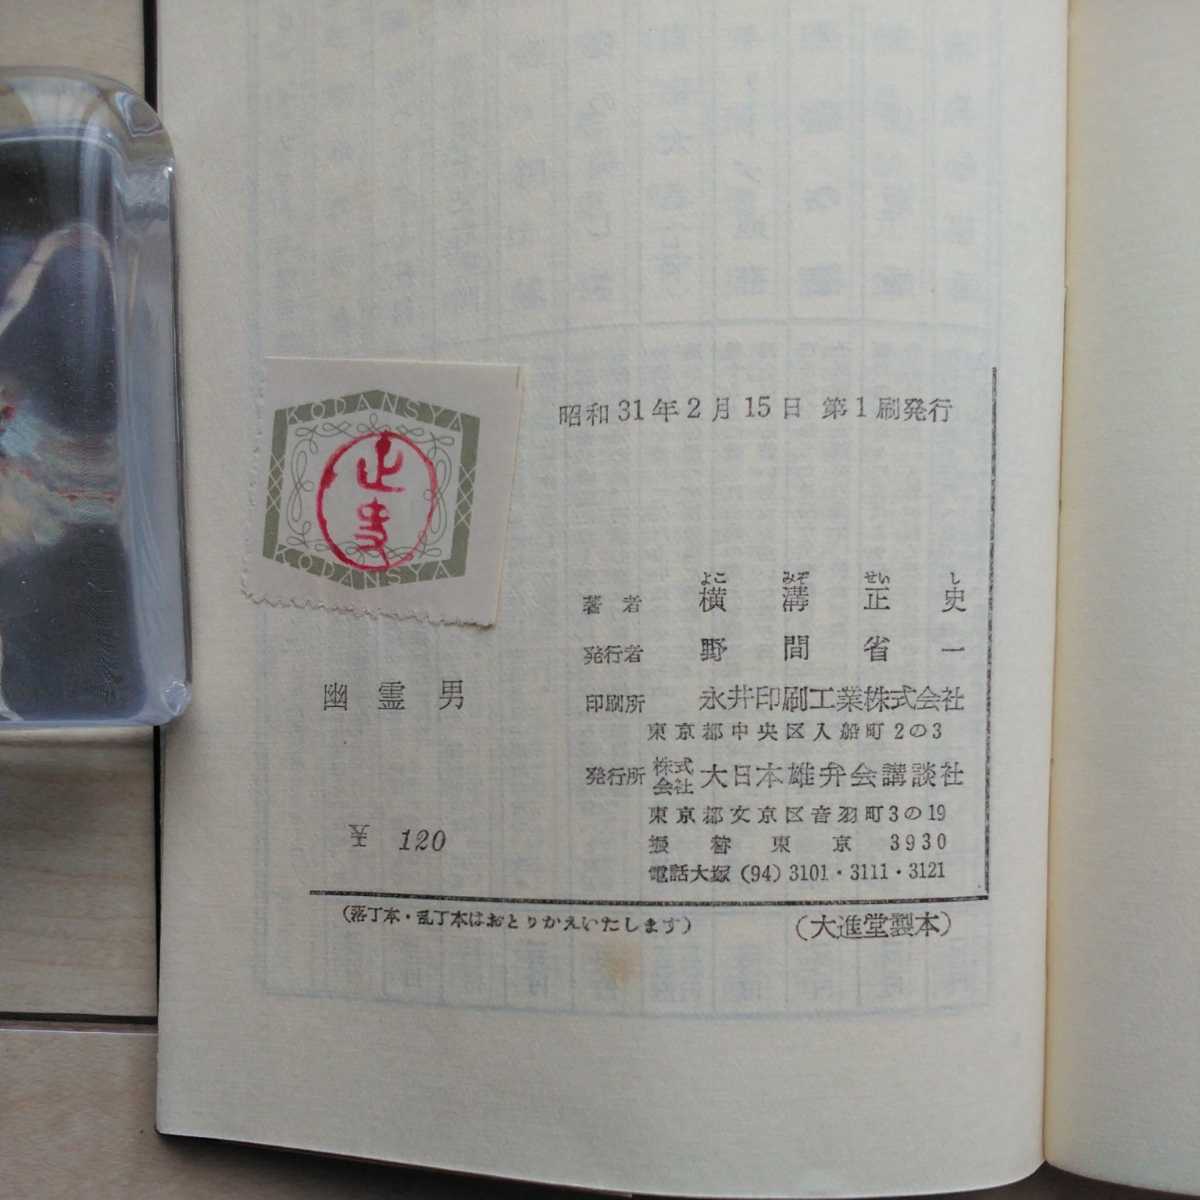 昭和31年2月15日 第1刷発行
KODANSYA
正史
KODANSYA
よこ みぞ せい し
著者 横溝正史
発行者 野間省一
印刷所 永井印刷工業株式会社
東京都中央区入船町2の3
発行所 株式会社 大日本雄弁会講談社
東京都文京区音羽町3の19
振替東京 3930
電話大塚 (94) 3101・3111・3121
幽霊男
¥ 120
(落丁本・乱丁本はおとりかえいたします)
(大進堂製本)